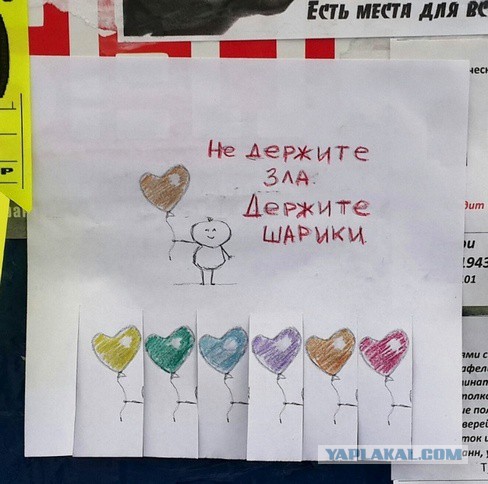 Есть места для вс
Не держите
зла.
Держите
шарики
1943
.01
YAPLAKAL.COM